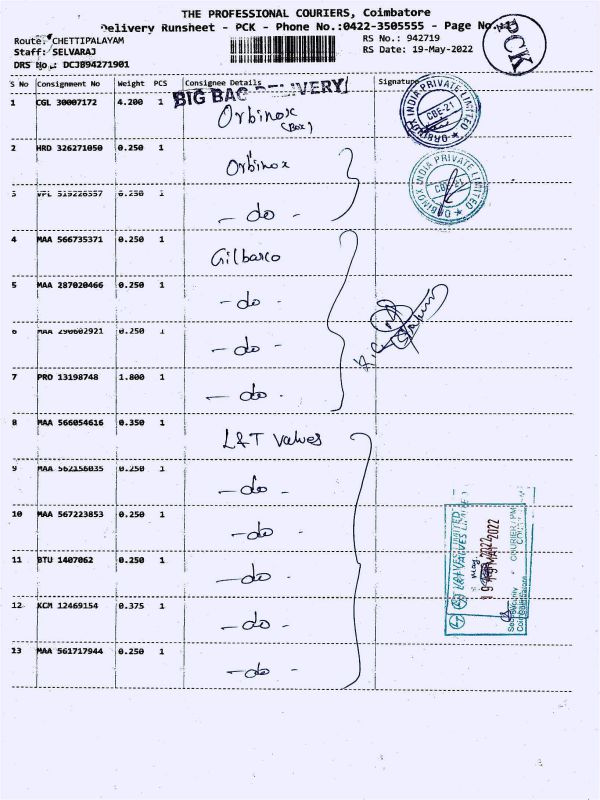 THE PROFESSIONAL COURIERS, Coimbatore
Delivery Runsheet - PCK - Phone No.:0422-3505555 - Page No.:
Route: CHETTIPALAYAM RS No.: 942719
Staff: SELVARAJ RS Date: 19-May-2022
DRS No.: DCJ894271901
PCK
S No Consignment No Weight PCS Consignee Details Signature
BIG BAG DELIVERY
1 CGL 30007172 4.200 1 Orbinox
(Box)
ORBINOX INDIA PRIVATE LIMITED
CBE-21
2 HRD 326271050 0.250 1 Orbinox
ORBINOX INDIA PRIVATE LIMITED
CBE-21
3 VPL 0.250 1 - do -
4 MAA 566735371 0.250 1 Gilbarco
5 MAA 287020466 0.250 1 - do -
6 MAA 290602921 0.250 1 - do -
7 PRO 13198748 1.800 1 - do -
8 MAA 566054616 0.350 1 L&T Valves
9 MAA 562156035 0.250 1 - do -
10 MAA 567223853 0.250 1 - do -
11 BTU 1407062 0.250 1 - do -
12 KCM 12469154 0.375 1 - do -
13 MAA 561717944 0.250 1 - do -
L&T VALVES LIMITED
19 MAY 2022
COURIER
Security
Coimbatore